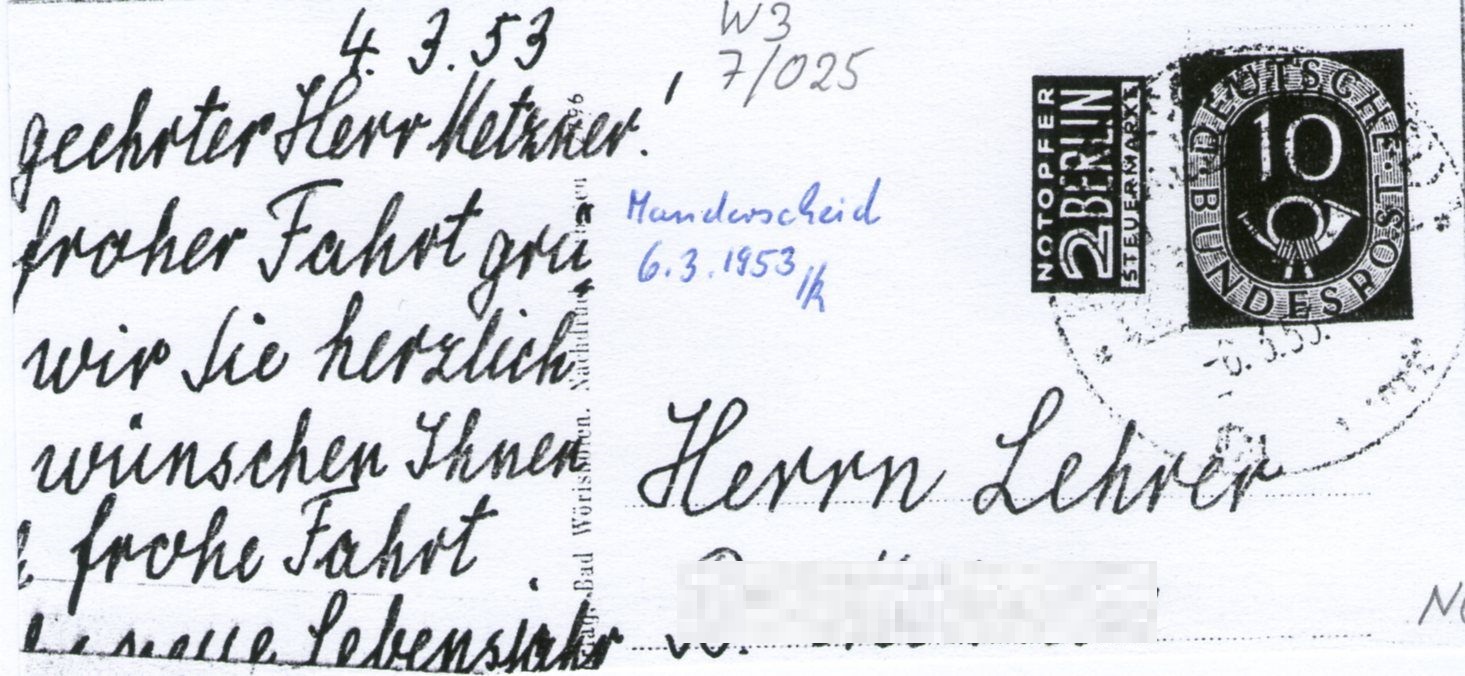 4.3.53
geehrter Herr Metzner!
froher Fahrt grü
wir Sie herzlich
wünschen Ihnen
frohe Fahrt
neue Lebensjahr
Bad Wörishofen. Nachdru
W3
7/025
Manderscheid
6.3.1953
NOTOPFER
2 BERLIN
STEUERMARKE
DEUTSCHE BUNDESPOST
10
-6.3.53.
Herrn Lehrer